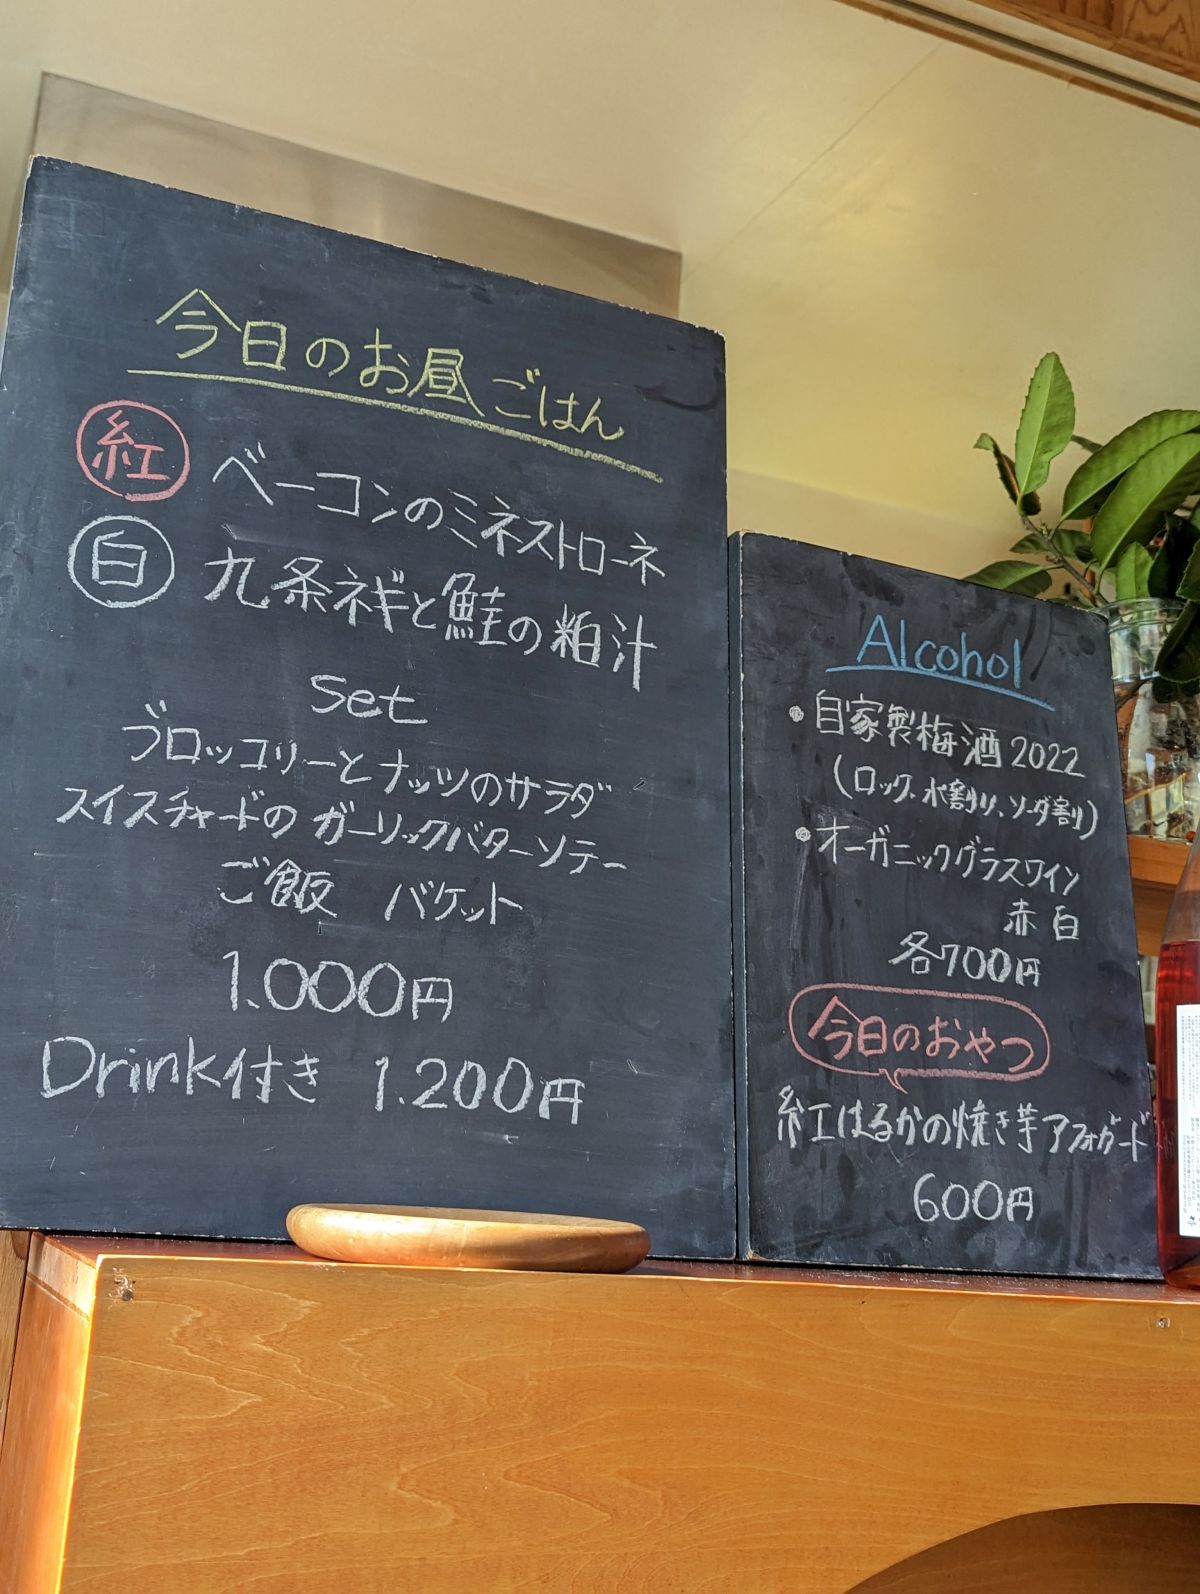 今日のお昼ごはん
紅 ベーコンのミネストローネ
白 九条ネギと鮭の粕汁
set
ブロッコリーとナッツのサラダ
スイスチャードのガーリックバターソテー
ご飯 バケット
1.000円
Drink付き 1.200円
Alcohol
・自家製梅酒2022
(ロック、水割り、ソーダ割)
・オーガニックグラスワイン
赤 白
各700円
今日のおやつ
紅はるかの焼き芋アフォガード
600円